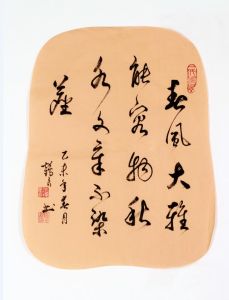 春风大雅
能容物秋
水文章不染
尘
乙未年春月
书